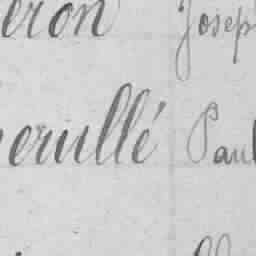 eron Josep
erullé Paul